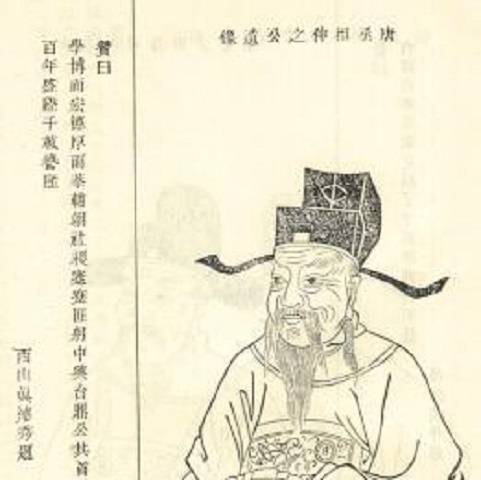 唐丞相仲之公遺像
贊曰
學博而宏德厚而恭朝社稷蹇蹇匪躬中興台鼎公其首
百年盛千載
西山真德秀題